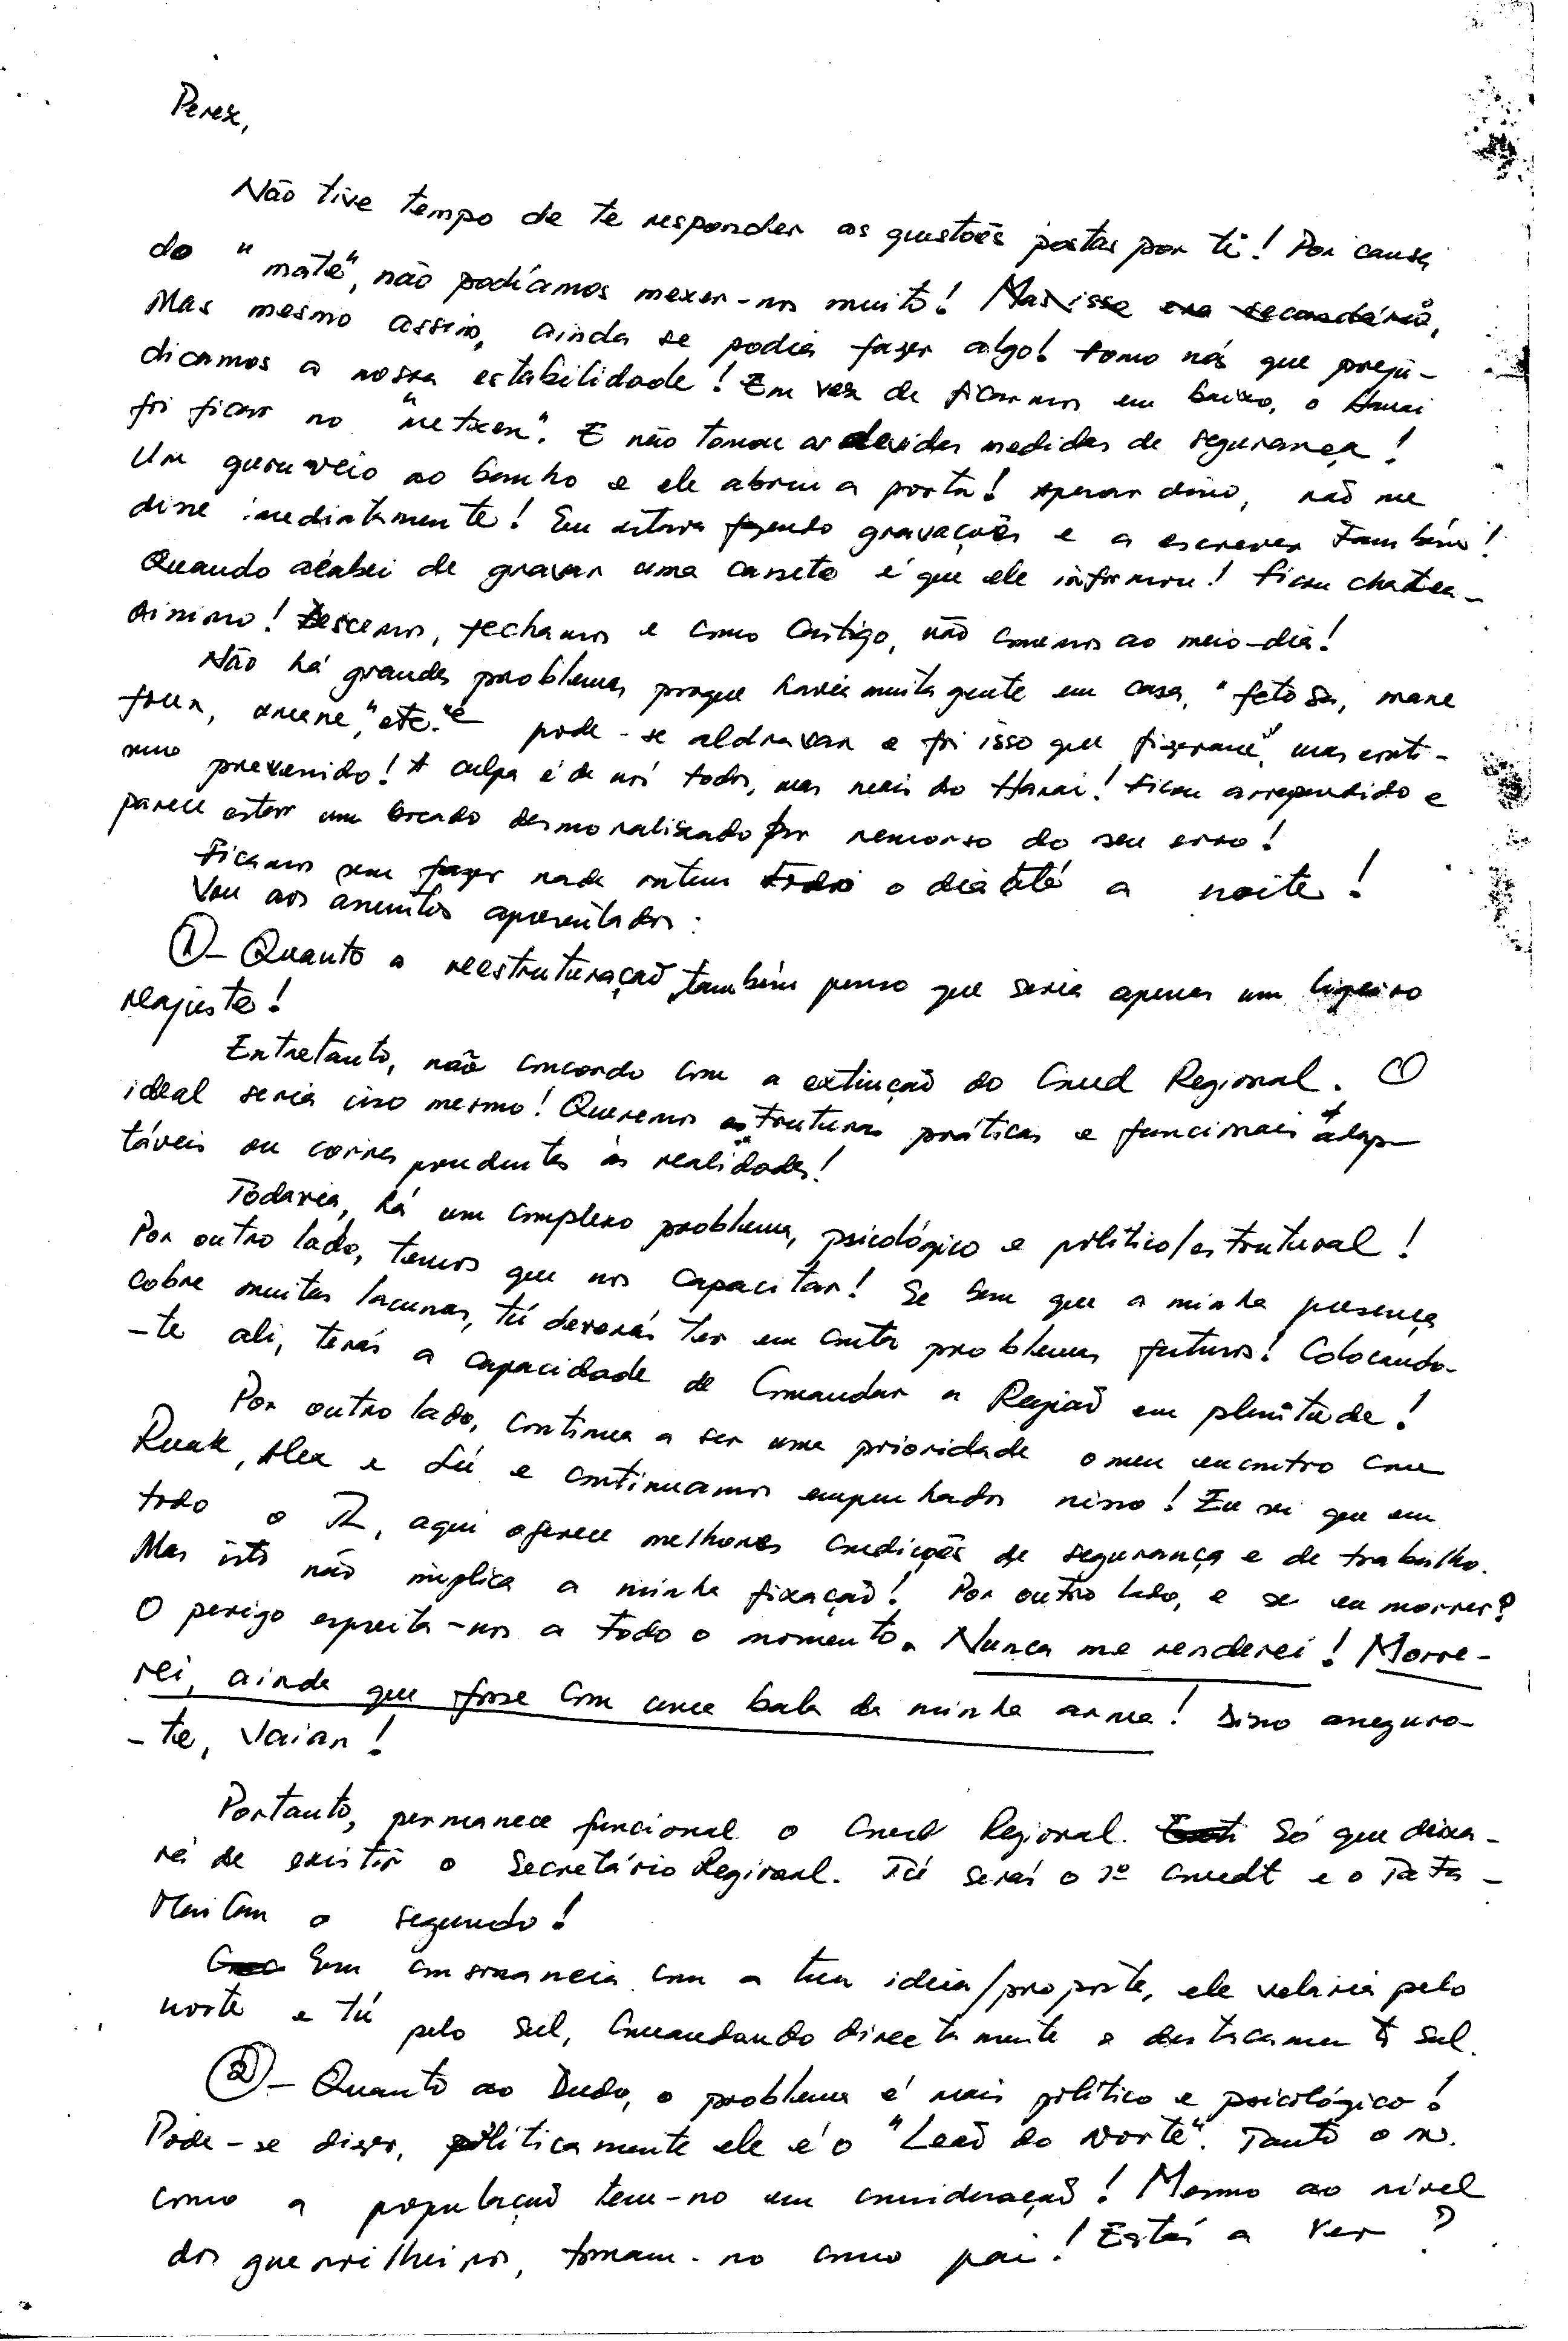 Perex,
Não tive tempo de te responder as questões postas por ti! Por causa
do "mate", não podíamos mexer-nos muito! Mas isso era secundário,
Mas mesmo assim, ainda se podia fazer algo! Fomo nós que preju-
dicamos a nossa estabilidade! Em vez de ficarmos em baixo, o Hanai
foi ficar no "netxen". E não tomou as devidas medidas de segurança!
Um guru veio ao banho e ele abriu a porta! Apesar disso, não me
disse imediatamente! Eu estava fazendo gravações e a escrever também!
Quando acabei de gravar uma cassete é que ele informou! Ficou chatea-
díssimo! Descemos, fechamos e como castigo, não comemos ao meio-dia!
Não há grandes problemas porque havia muita gente em casa, "feto sa, mane
foun, etc." e pode-se aldravar e foi isso que fizeram, mas conti-
nuo prevenido! A culpa é de nós todos, mas mais do Hanai! Ficou arrependido e
parece estar um bocado desmoralizado por remorso do seu erro!
Ficamos sem fazer nada ontem todo o dia até a noite!
Vou aos assuntos apresentados:
① - Quanto a reestruturação, também penso que seria apenas um ligeiro
reajuste!
Entretanto, não concordo com a extinção do Cmd Regional. O
ideal seria isso mesmo! Queremos estruturas práticas e funcionais adap-
táveis ou correspondentes às realidades!
Todavia, há um complexo problema, psicológico e político/estrutural!
Por outro lado, temos que nos capacitar! Se bem que a minha presença
cobre muitas lacunas, tú deverás ter em conta problemas futuros! Colocando-
-te ali, terás a capacidade de Comandar a Região em plenitude!
Por outro lado, continua a ser uma prioridade o meu encontro com
Ruak, Alex e Lú e continuamos empenhados nisso! Eu sei que em
todo o TL, aqui oferece melhores condições de segurança e de trabalho.
Mas isto não implica a minha fixação! Por outro lado, e se eu morrer?
O perigo espreita-nos a todo o momento. Nunca me renderei! Morre-
rei, ainda que fosse com uma bala da minha arma! Disso asseguro-
-te, Vaian!
Portanto, permanece funcional o Cmd Regional. Só que deixa-
rá de existir o Secretário Regional. Tú serás o 1º Cmdt e o Tata-
Mailau o segundo!
Em consonancia com a tua ideia/proposta, ele velaria pelo
norte e tú pelo sul, Comandando directamente o destacamento sul.
② - Quanto ao Dudo, o problema é mais político e psicológico!
Pode-se dizer, politicamente ele é o "Leão do Norte". Tanto o in.
como a população tem-no em consideração! Mesmo ao nível
dos guerrilheiros, tomam-no como pai! Estás a ver?